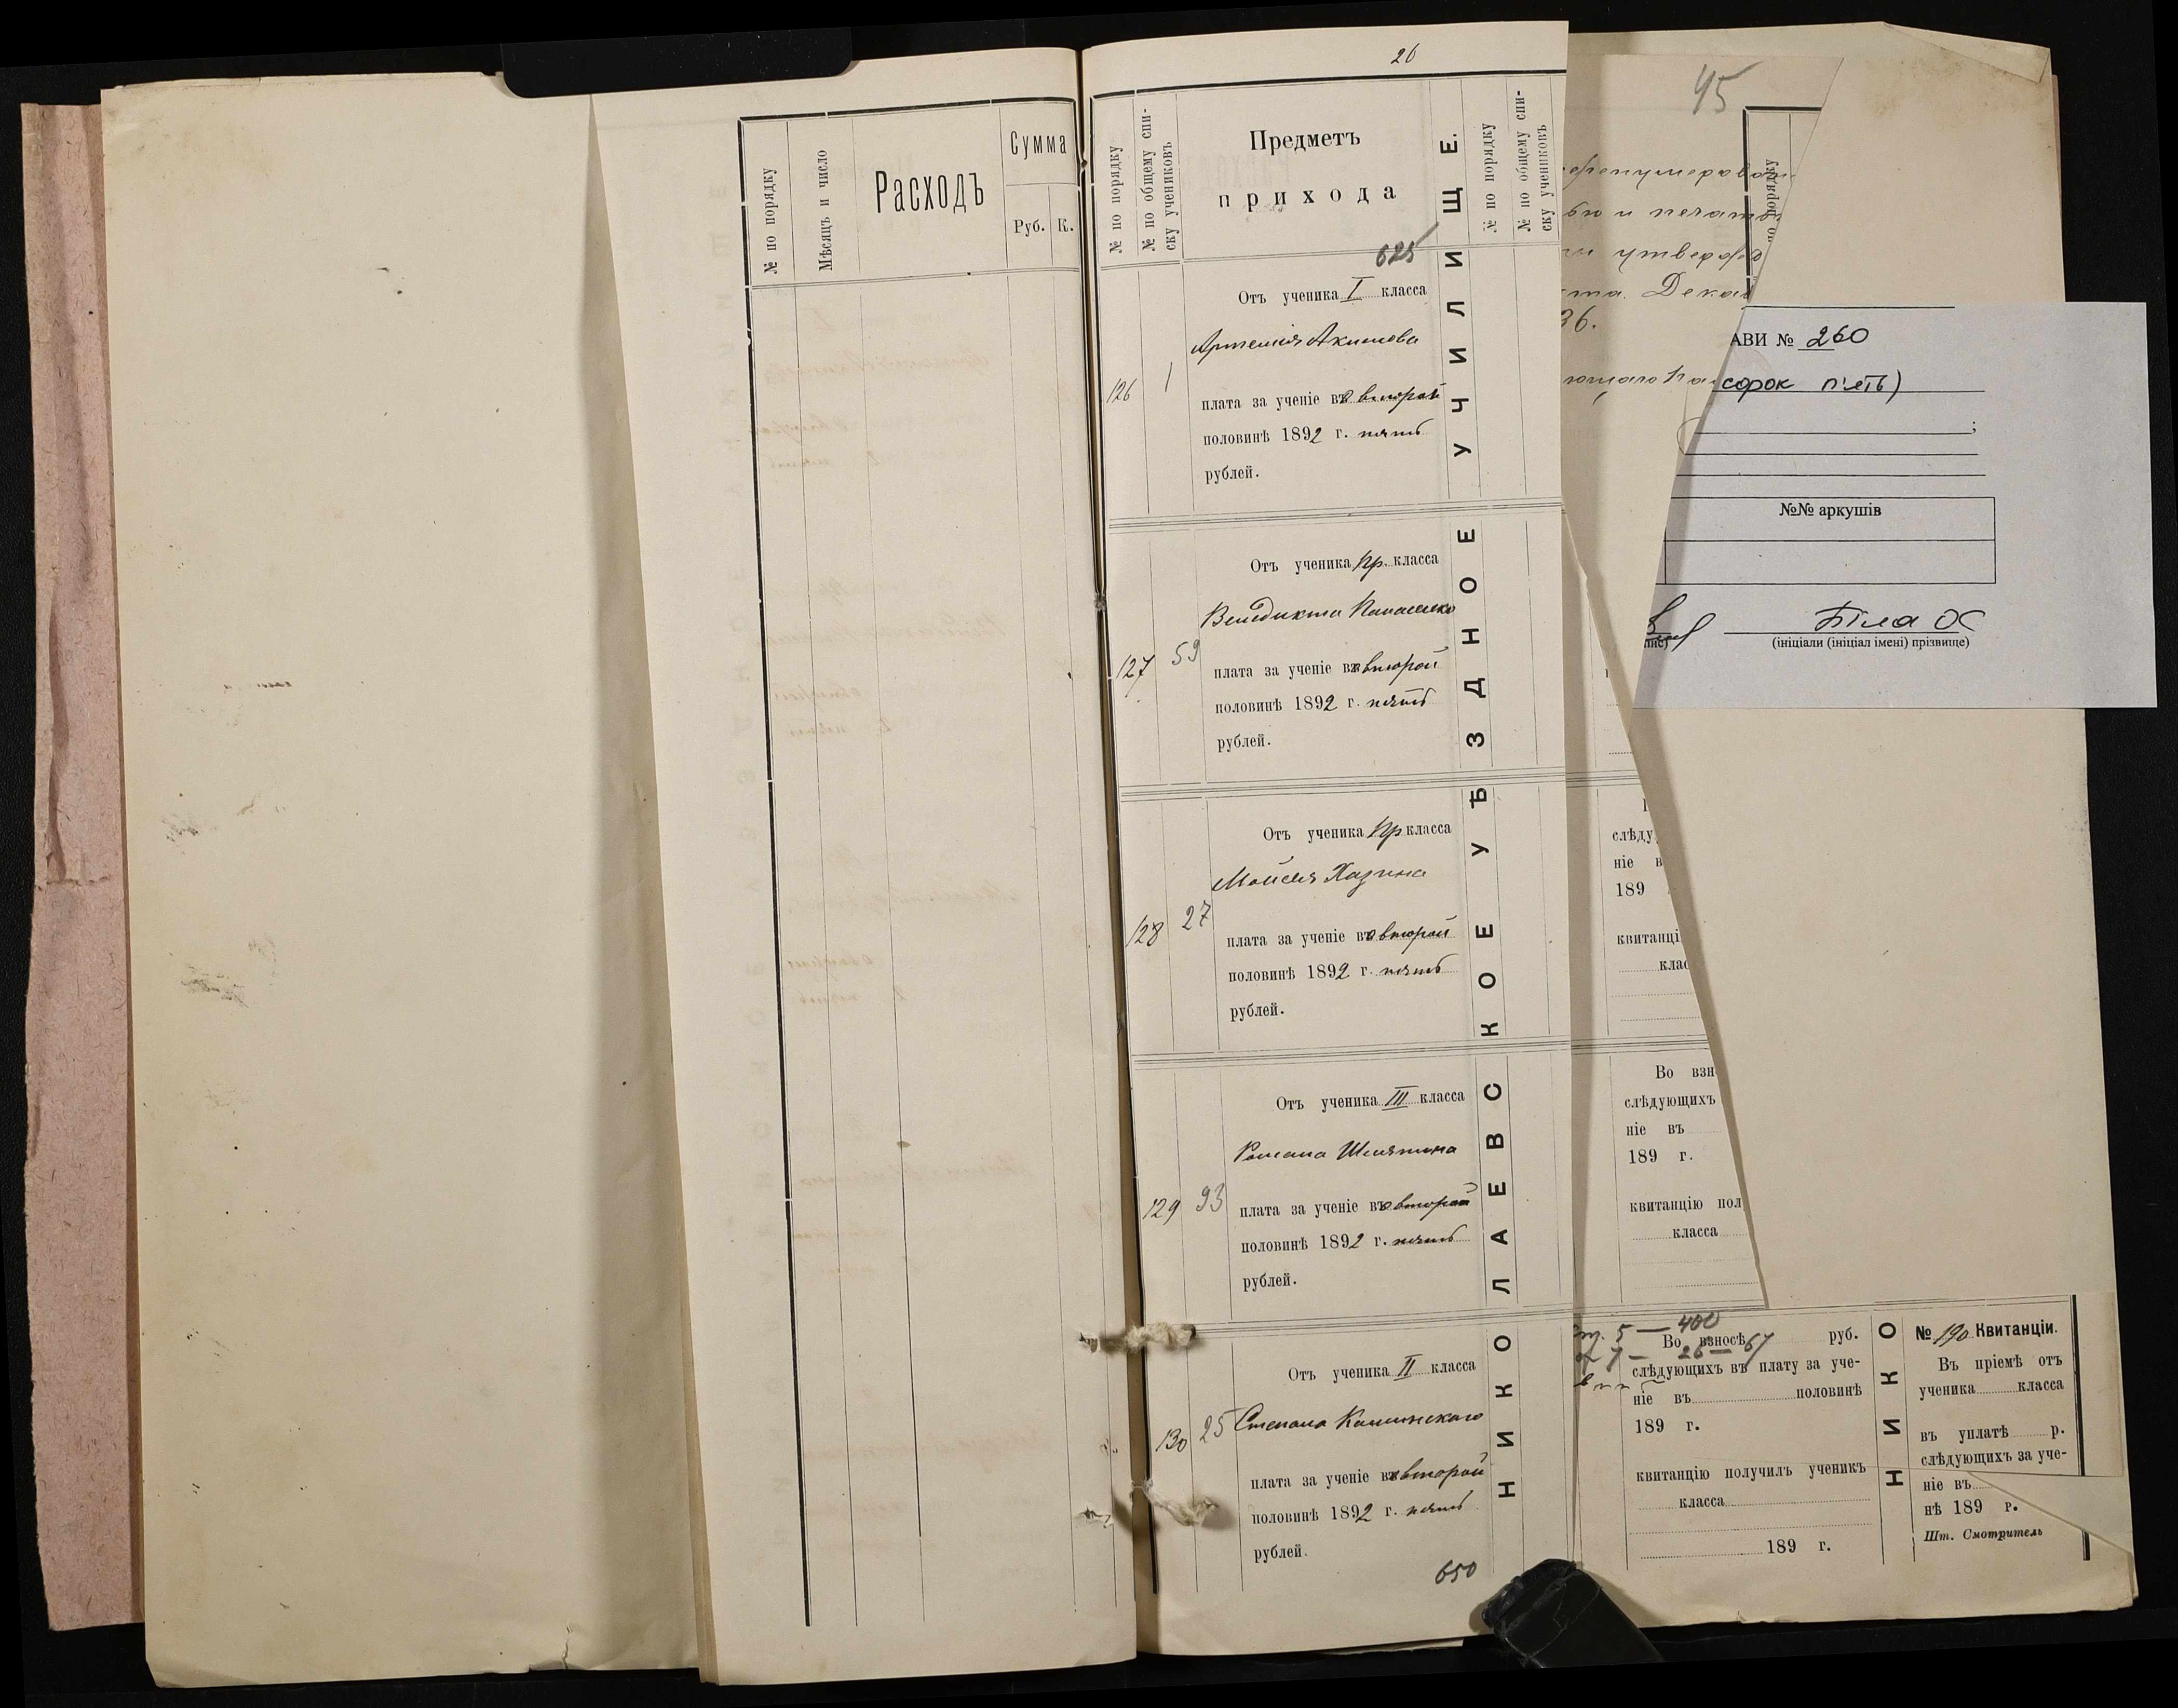 № по порядку
Мѣсяцъ и число
Расходъ
Сумма
Руб. К.
26
№ по порядку
№ по общему спи-
ску учениковъ
Предметъ
прихода
№ по порядку
№ по общему спи-
ску учениковъ
НИКОЛАЕВСКОЕ УѢЗДНОЕ УЧИЛИЩЕ.
625
126
1
Отъ ученика I класса
Артемія Акимова
плата за ученіе въ второй
половинѣ 1892 г. пять
рублей.
127
59
Отъ ученика Пр. класса
Венедикта
плата за ученіе въ второй
половинѣ 1892 г. пять
рублей.
128
27
Отъ ученика Пр класса
Мойсея Хазина
плата за ученіе въ второй
половинѣ 1892 г. пять
рублей.
129
93
Отъ ученика III класса
Романа
плата за ученіе въ второй
половинѣ 1892 г. пять
рублей.
130
25
Отъ ученика II класса
Степана Каминскаго
плата за ученіе въ второй
половинѣ 1892 г. пять
рублей.
650
45
и печать
Дека
36.
по порядку
АВИ № 260
сорок п'ять)
;
№№ аркушів
Біла ОС
(ініціали (ініціал імені) прізвище)
слѣду
ніе в
189
квитанці
клас
Во взн
слѣдующихъ
ніе въ
189 г.
квитанцію пол
класса
5 — 400
7 — 26 — 67
Во взносѣ руб.
слѣдующихъ въ плату за уче-
ніе въ половинѣ
189 г.
квитанцію получилъ ученикъ
класса
189 г.
НИКО
№ 190 Квитанціи.
Въ пріемѣ отъ
ученика класса
въ уплатѣ р.
слѣдующихъ за уче-
ніе въ
нѣ 189 г.
Шт. Смотритель